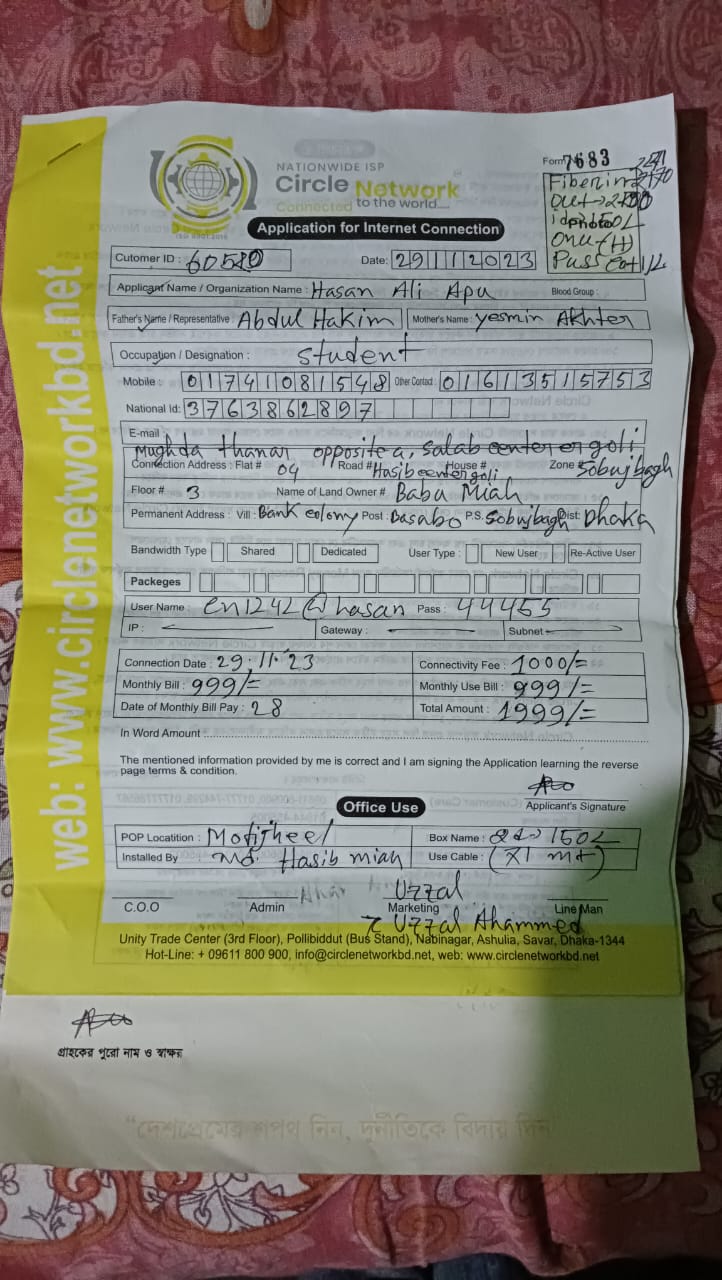 NATIONWIDE ISP
Circle Network
Connected to the world....
ISO 9001:2015
Form 7683
Fiber in 2170
out → 2200
Photo
onu (H)
Pass
Application for Internet Connection
Cutomer ID : 60520
Date: 29112023
Applicant Name / Organization Name : Hasan Ali Apu Blood Group :
Father's Name / Representative : Abdul Hakim Mother's Name : Yesmin Akhter
Occupation / Designation : Student
Mobile : 01741081548 Other Contact : 01613515753
National Id: 3763862897
E-mail
Mughda thanar opposite a, Salab center er goli
Connection Address : Flat # 04 Road # Hasib center goli House # Zone # Sobujbagh
Floor # 3 Name of Land Owner # Babu Miah
Permanent Address : Vill : Bank colony Post : Basabo P.S. Sobujbagh Dist: Dhaka
Bandwidth Type Shared Dedicated User Type : New User Re-Active User
Packeges
User Name : cn1242@hasan Pass : 44455
IP : Gateway : Subnet
Connection Date : 29.11.23 Connectivity Fee : 1000/=
Monthly Bill : 999/= Monthly Use Bill : 999/=
Date of Monthly Bill Pay : 28 Total Amount : 1999/=
In Word Amount
The mentioned information provided by me is correct and I am signing the Application learning the reverse
page terms & condition.
Applicant's Signature
Office Use
POP Locatition : Motijheel Box Name : 1502
Installed By Md. Hasib miah Use Cable : (XI mt)
Uzzal
C.O.O Admin Marketing Line Man
Uzzal Ahammed
Unity Trade Center (3rd Floor), Pollibiddut (Bus Stand), Nabinagar, Ashulia, Savar, Dhaka-1344
Hot-Line: + 09611 800 900, info@circlenetworkbd.net, web: www.circlenetworkbd.net
web: www.circlenetworkbd.net
গ্রাহকের পুরো নাম ও স্বাক্ষর
"দেশপ্রেমের শপথ নিন, দুর্নীতিকে বিদায় দিন"